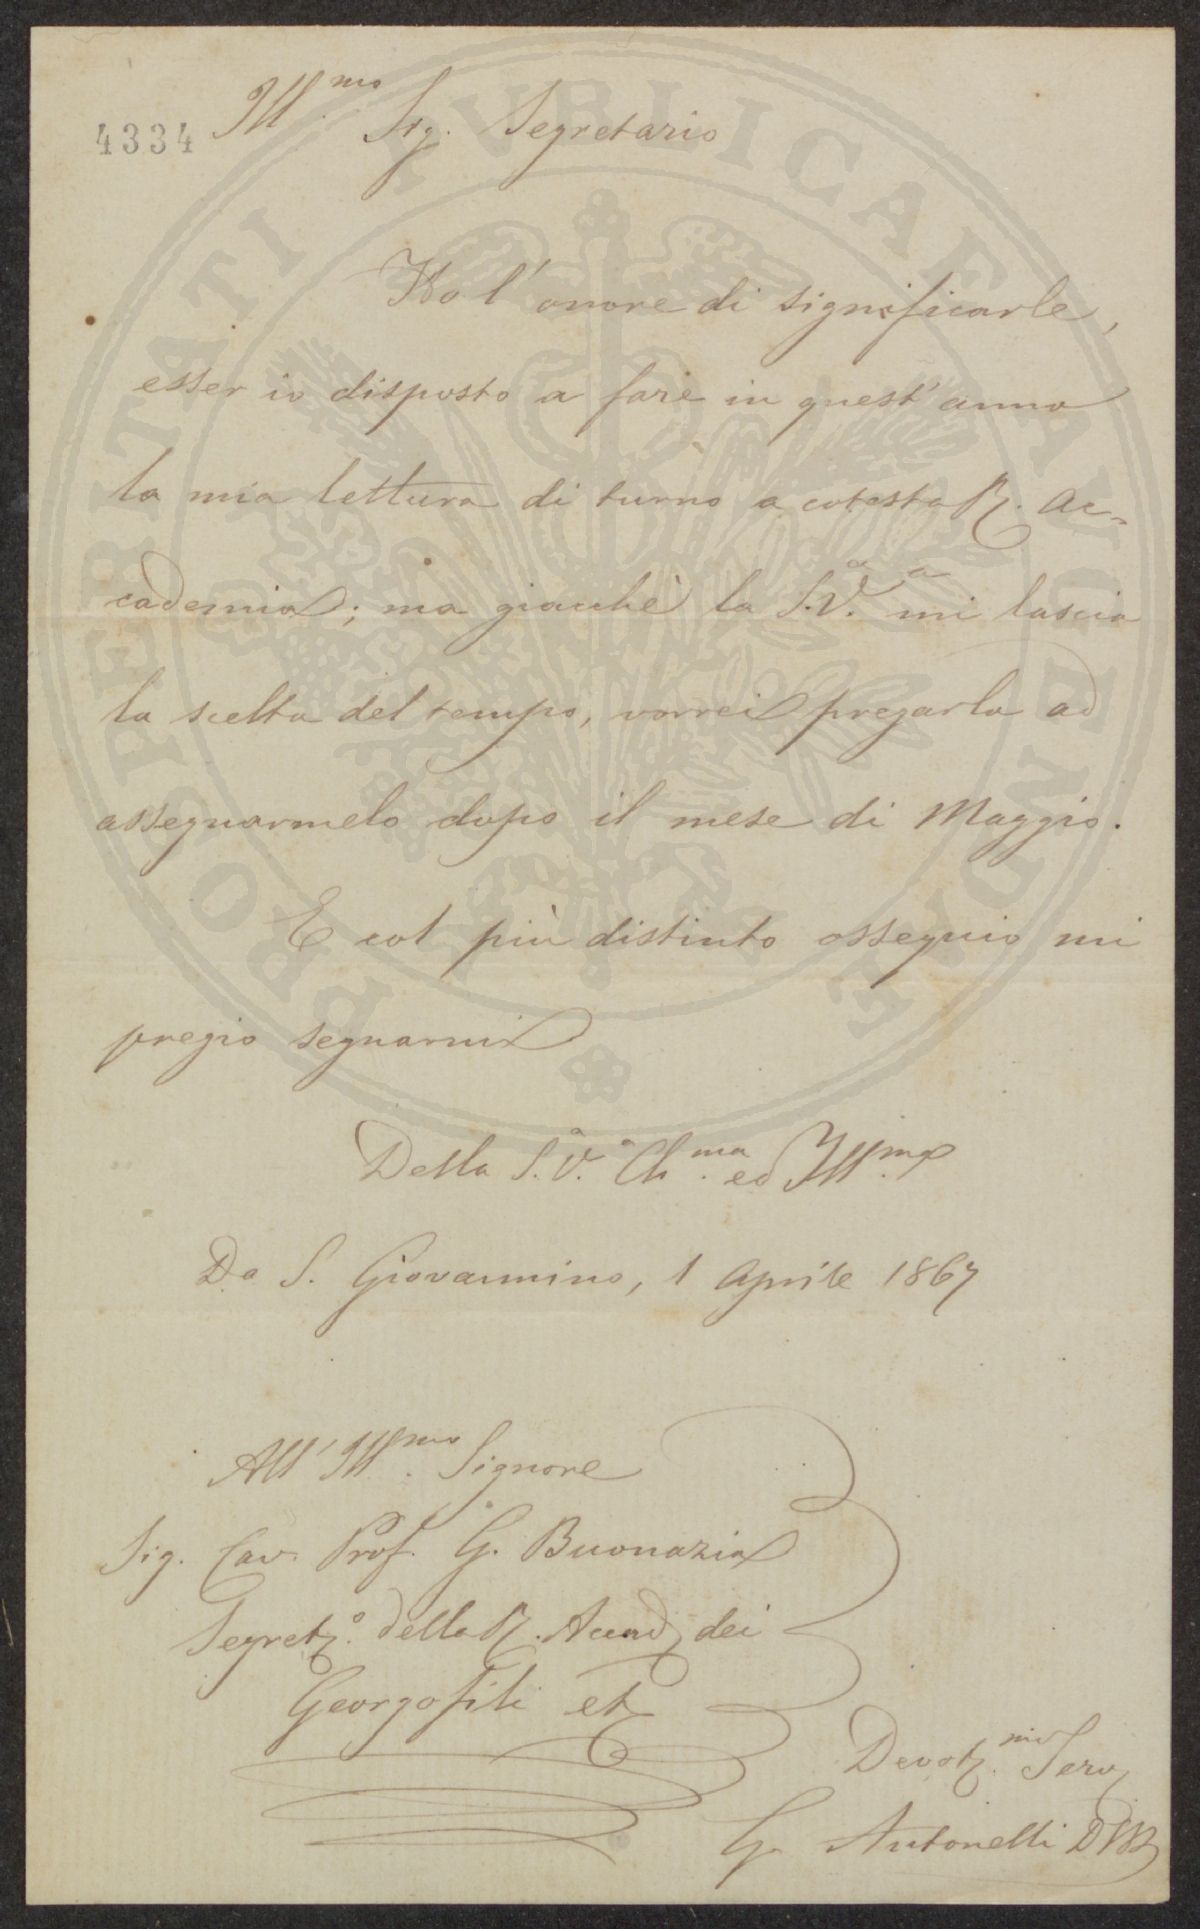 4334
Ill.mo Sig. Segretario
Ho l'onore di significarle,
esser io disposto a fare in quest'anno
la mia lettura di turno a cotesta R. Ac-
cademia; ma giacchè la S.V. mi lascia
la scelta del tempo, vorrei pregarla ad
assegnarmelo dopo il mese di Maggio.
E col più distinto ossequio mi
pregio segnarmi
Della S.V. Ch.ma ed Ill.ma
Da S. Giovannino, 1 Aprile 1867
All'Ill.mo Signore
Sig. Cav. Prof. G. Buonazia
Segret.o della R. Accad. dei
Georgofili etc
Devot.mo Serv.
G. Antonelli D.S.P.
PROSPERITATI PVBLICAE AVGENDAE